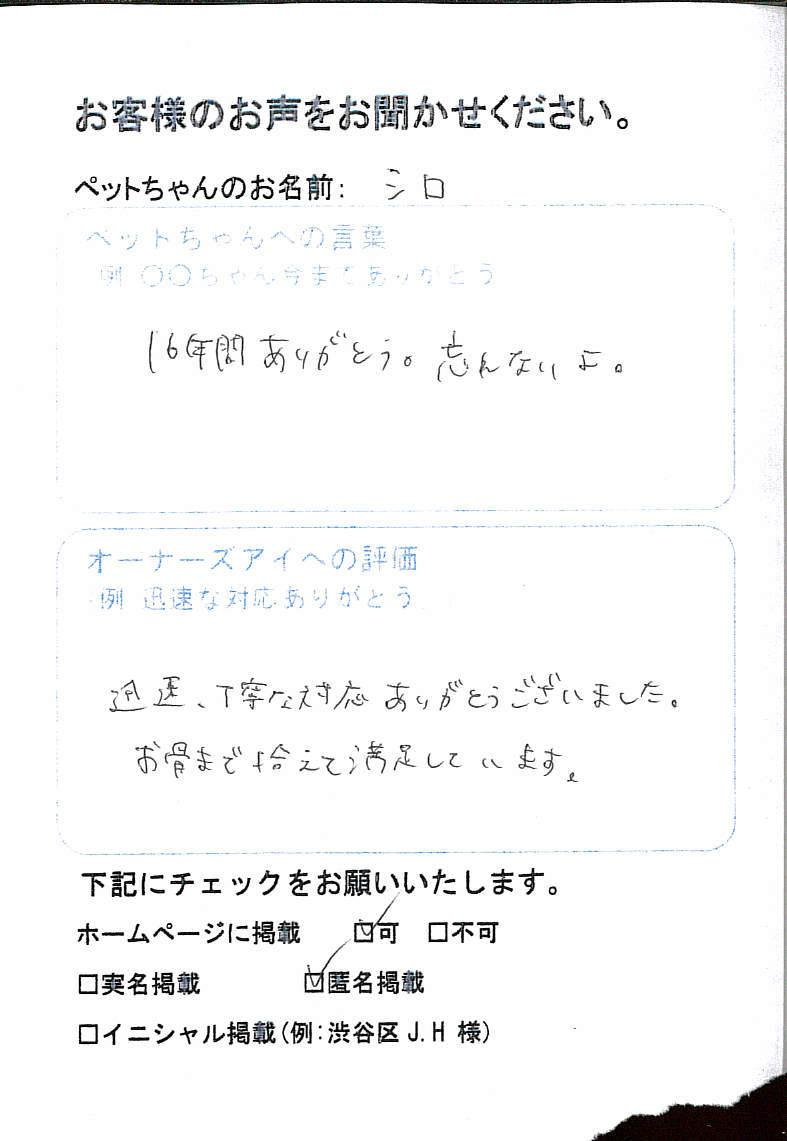 お客様のお声をお聞かせください。
ペットちゃんのお名前: シロ
ペットちゃんへの言葉
例 〇〇ちゃん今までありがとう
16年間ありがとう。忘れないよ。
オーナーズアイへの評価
例 迅速な対応ありがとう
迅速、丁寧な対応ありがとうございました。
お骨まで拾えて満足しています。
下記にチェックをお願いいたします。
ホームページに掲載 ☑可 □不可
□実名掲載 ☑匿名掲載
□イニシャル掲載(例:渋谷区 J.H 様)